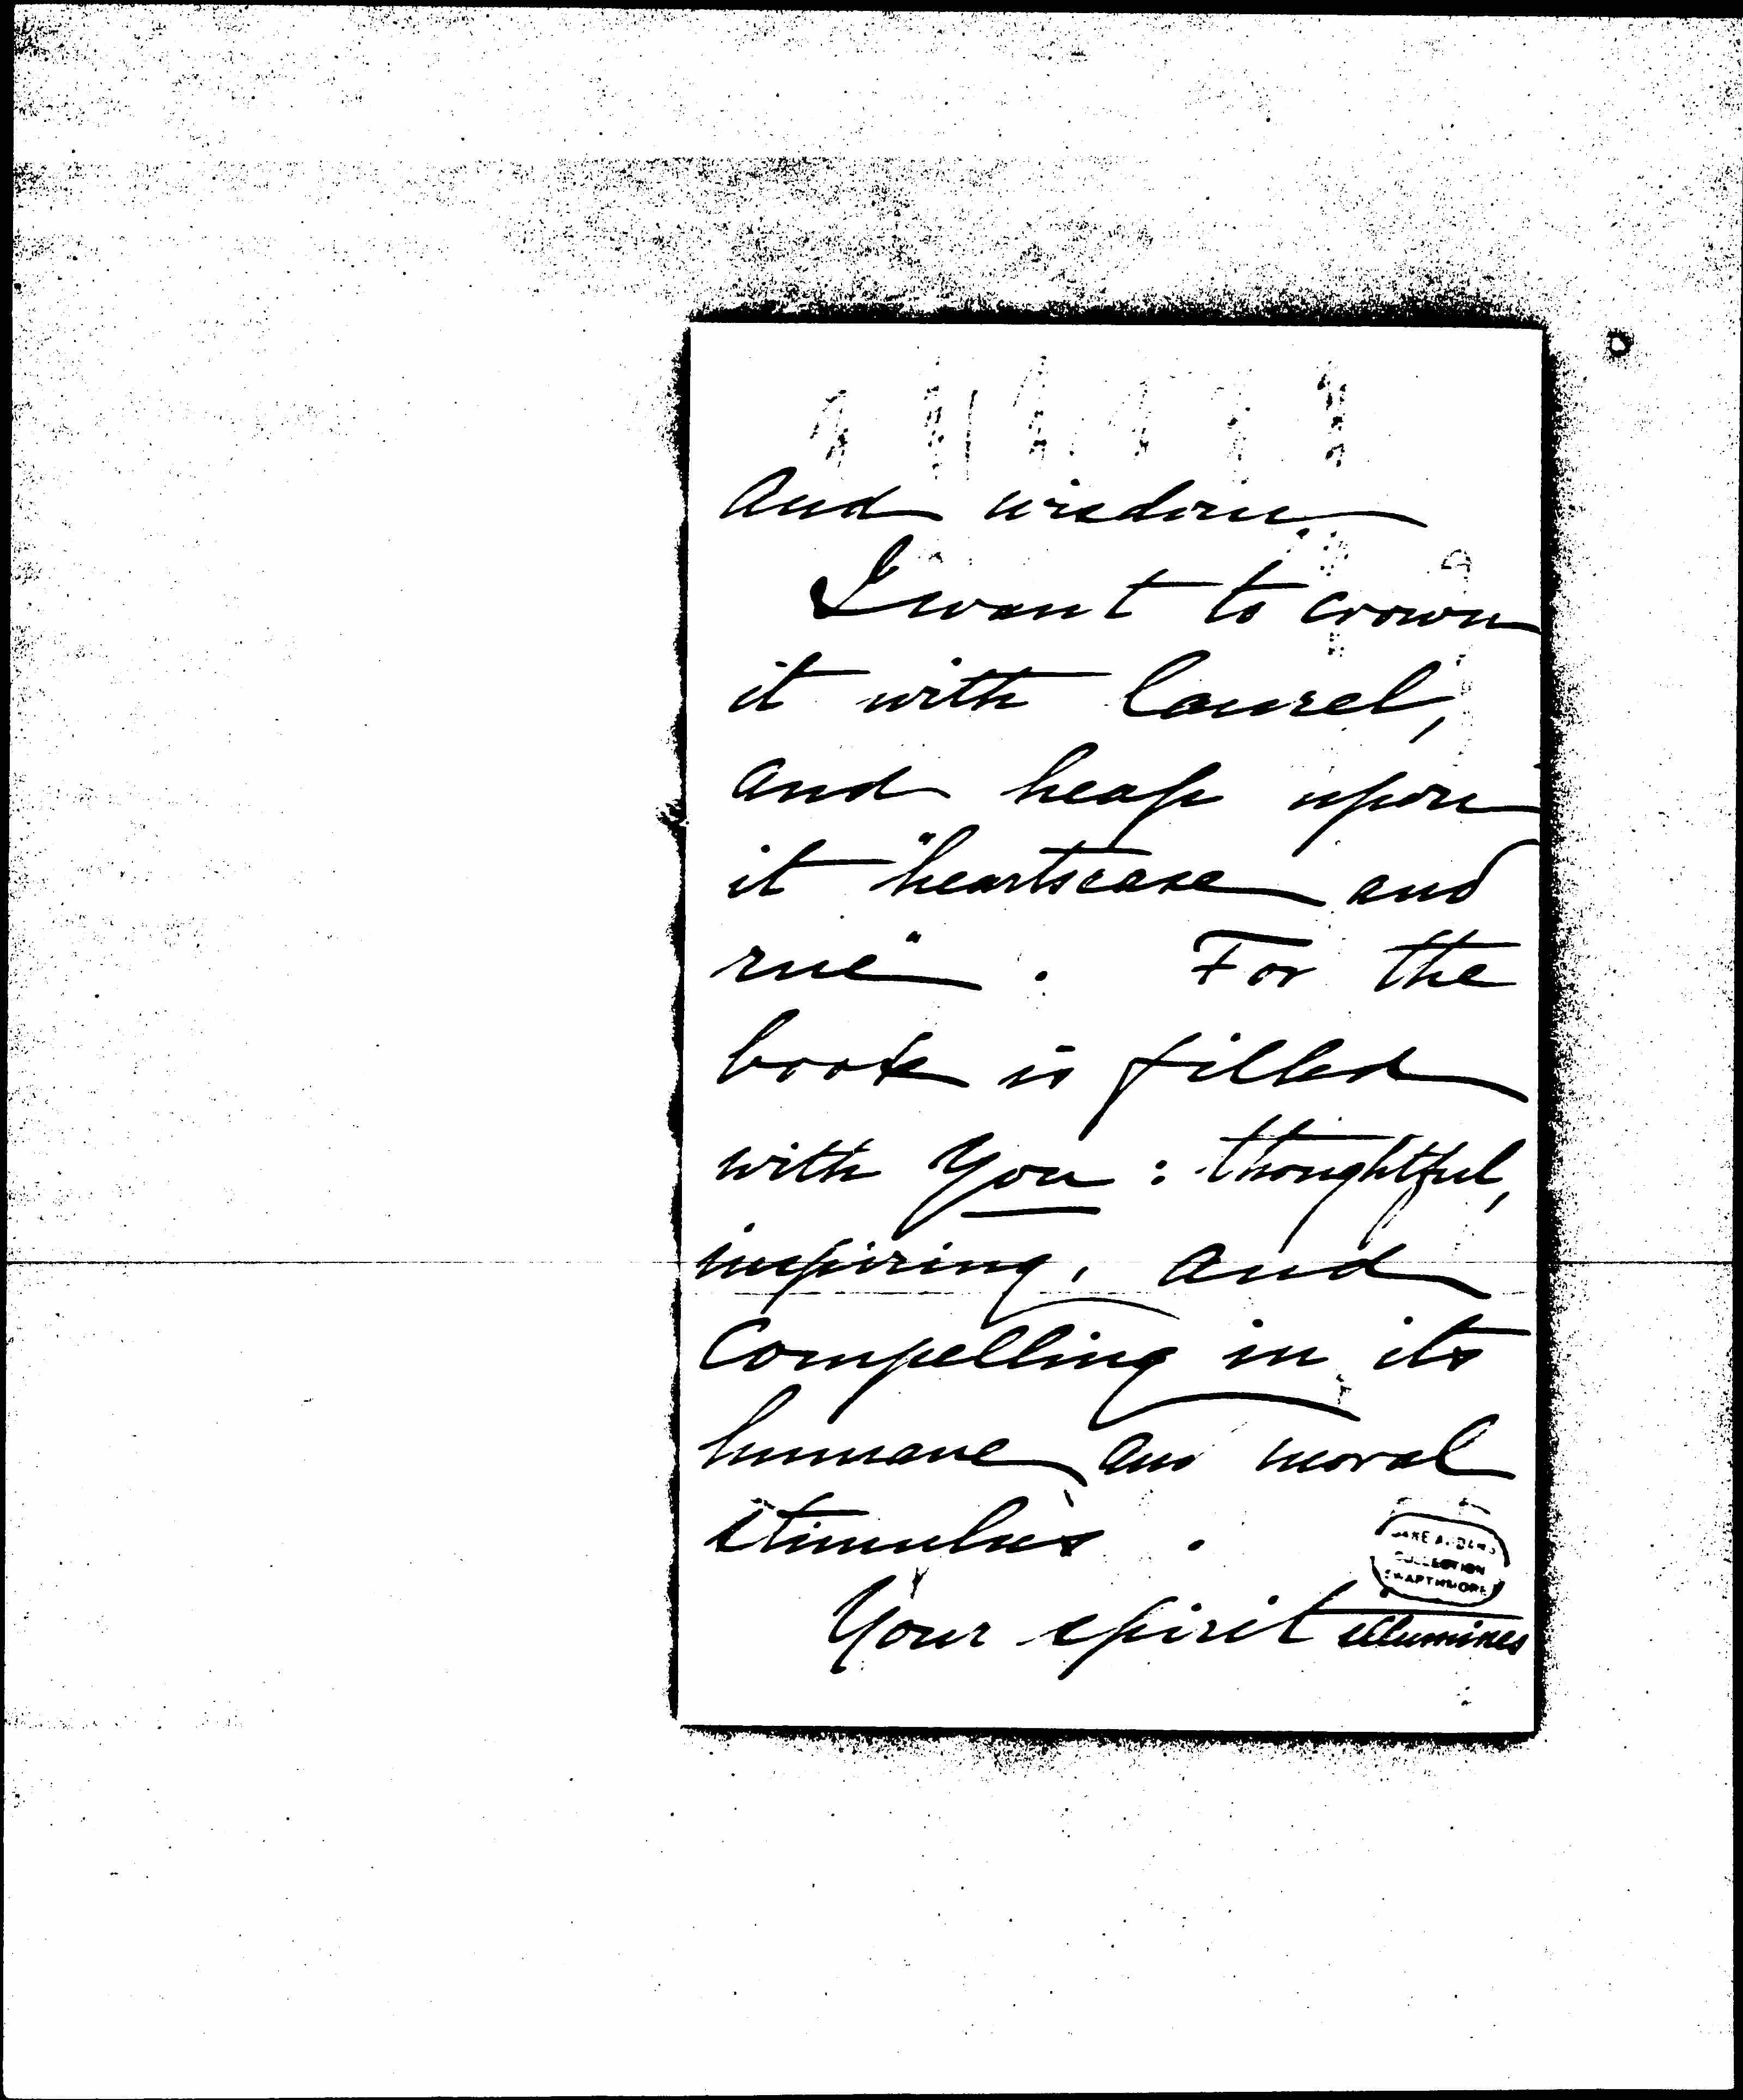 and wisdom
I want to crown
it with laurel,
and heap upon
it "heartsease and
rue". For the
book is filled
with you: thoughtful,
inspiring, and
compelling in its
humane and moral
stimulus.
JANE ADDAMS
COLLECTION
SWARTHMORE
Your spirit illumines